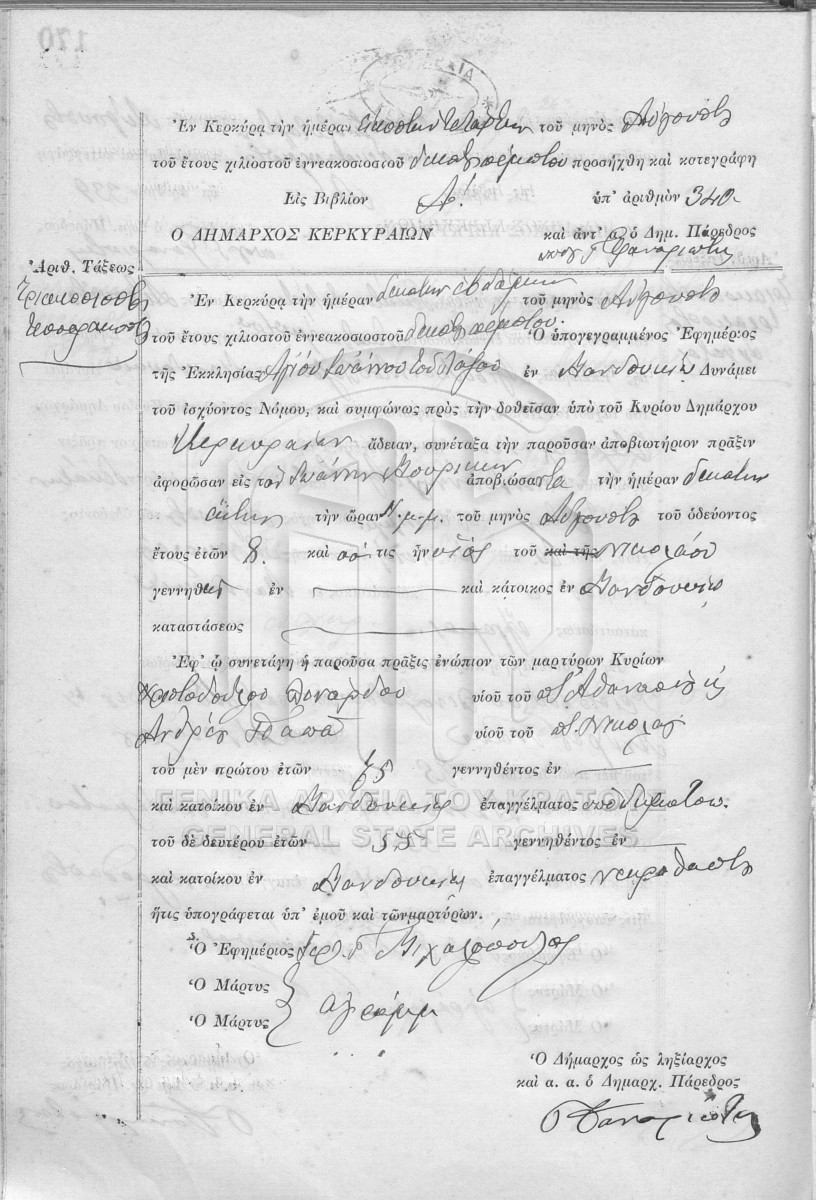 Ἐν Κερκύρᾳ τὴν ἡμέραν εἰκοστὴν τετάρτην τοῦ μηνὸς Αὐγούστου
τοῦ ἔτους χιλιοστοῦ ἐννεακοσιοστοῦ δεκάτου πέμπτου προσήχθη καὶ κατεγράφη
Εἰς Βιβλίον Α΄. ὑπ' ἀριθμὸν 340
Ο ΔΗΜΑΡΧΟΣ ΚΕΡΚΥΡΑΙΩΝ καὶ ἀντ' α. ὁ Δημ. Πάρεδρος
Φαναριώτης
Ἀριθ. Τάξεως
Τριακοσιοστὸς
τεσσαρακοστὸς
Ἐν Κερκύρᾳ τὴν ἡμέραν δεκάτην ἑβδόμην τοῦ μηνὸς Αὐγούστου
τοῦ ἔτους χιλιοστοῦ ἐννεακοσιοστοῦ δεκάτου πέμπτου. Ὁ ὑπογεγραμμένος Ἐφημέριος
τῆς Ἐκκλησίας Ἁγίου Ἰωάννου τοῦ ἐν Μανδουκίῳ Δυνάμει
τοῦ ἰσχύοντος Νόμου, καὶ συμφώνως πρὸς τὴν δοθεῖσαν ὑπὸ τοῦ Κυρίου Δημάρχου
Κερκυραίων ἄδειαν, συνέταξα τὴν παροῦσαν ἀποβιωτήριον πρᾶξιν
ἀφορῶσαν εἰς τὸν Ἰωάννην ἀποβιώσαντα τὴν ἡμέραν δεκάτην
τὴν ὥραν μ.μ. τοῦ μηνὸς Αὐγούστου τοῦ ὁδεύοντος
ἔτους ἐτῶν 8. καὶ ὅστις ἦν υἱὸς τοῦ καὶ τῆς Νικολάου
γεννηθεὶς ἐν καὶ κάτοικος ἐν Μανδουκίῳ
καταστάσεως
Ἐφ' ᾧ συνετάγη ἡ παροῦσα πρᾶξις ἐνώπιον τῶν μαρτύρων Κυρίων
Χριστοδούλου υἱοῦ τοῦ Ἀθανασίου
Ἀνδρέου Παπᾶ υἱοῦ τοῦ Νικολάου
τοῦ μὲν πρώτου ἐτῶν γεννηθέντος ἐν
καὶ κατοίκου ἐν Μανδουκίῳ ἐπαγγέλματος
τοῦ δὲ δευτέρου ἐτῶν 55 γεννηθέντος ἐν
καὶ κατοίκου ἐν Μανδουκίῳ ἐπαγγέλματος νεκροθάπτου
ἥτις ὑπογράφεται ὑπ' ἐμοῦ καὶ τῶν μαρτύρων.
Ὁ Ἐφημέριος Μιχαλόπουλος
Ὁ Μάρτυς
Ὁ Μάρτυς ἀγράμμ
Ὁ Δήμαρχος ὡς ληξίαρχος
καὶ α. α. ὁ Δημαρχ. Πάρεδρος
Φαναριώτης
ΓΕΝΙΚΑ ΑΡΧΕΙΑ ΤΟΥ ΚΡΑΤΟΥΣ
GENERAL STATE ARCHIVES